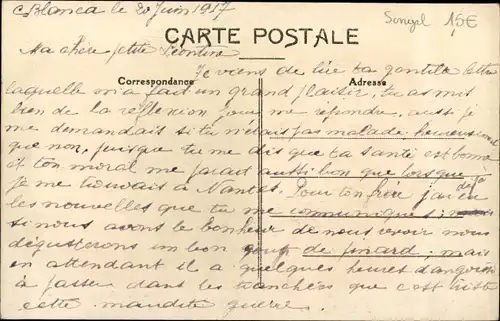 C Blanca le 20 Juin 1917
Senegal 15€
CARTE POSTALE
Ma chère petite Léontine
Correspondance
Adresse
Je viens de lire ta gentille lettre
laquelle m'a fait un grand plaisir, tu as mis
bien de la reflexion pour me répondre, aussi je
me demandais si tu n'étais pas malade heureusement
que non, puisque tu me dis que ta santé est bonne
et ton moral me parait aussi bon que lorsque
je me trouvais à Nantes. Pour ton frère j'ai eu déja
les nouvelles que tu me communiques;
si nous avons le bonheur de nous revoir nous
dégusterons un bon de pinard, mais
en attendant il a quelques heures d'angoisse
à passer dans les tranchées que c'est triste
cette maudite guerre.